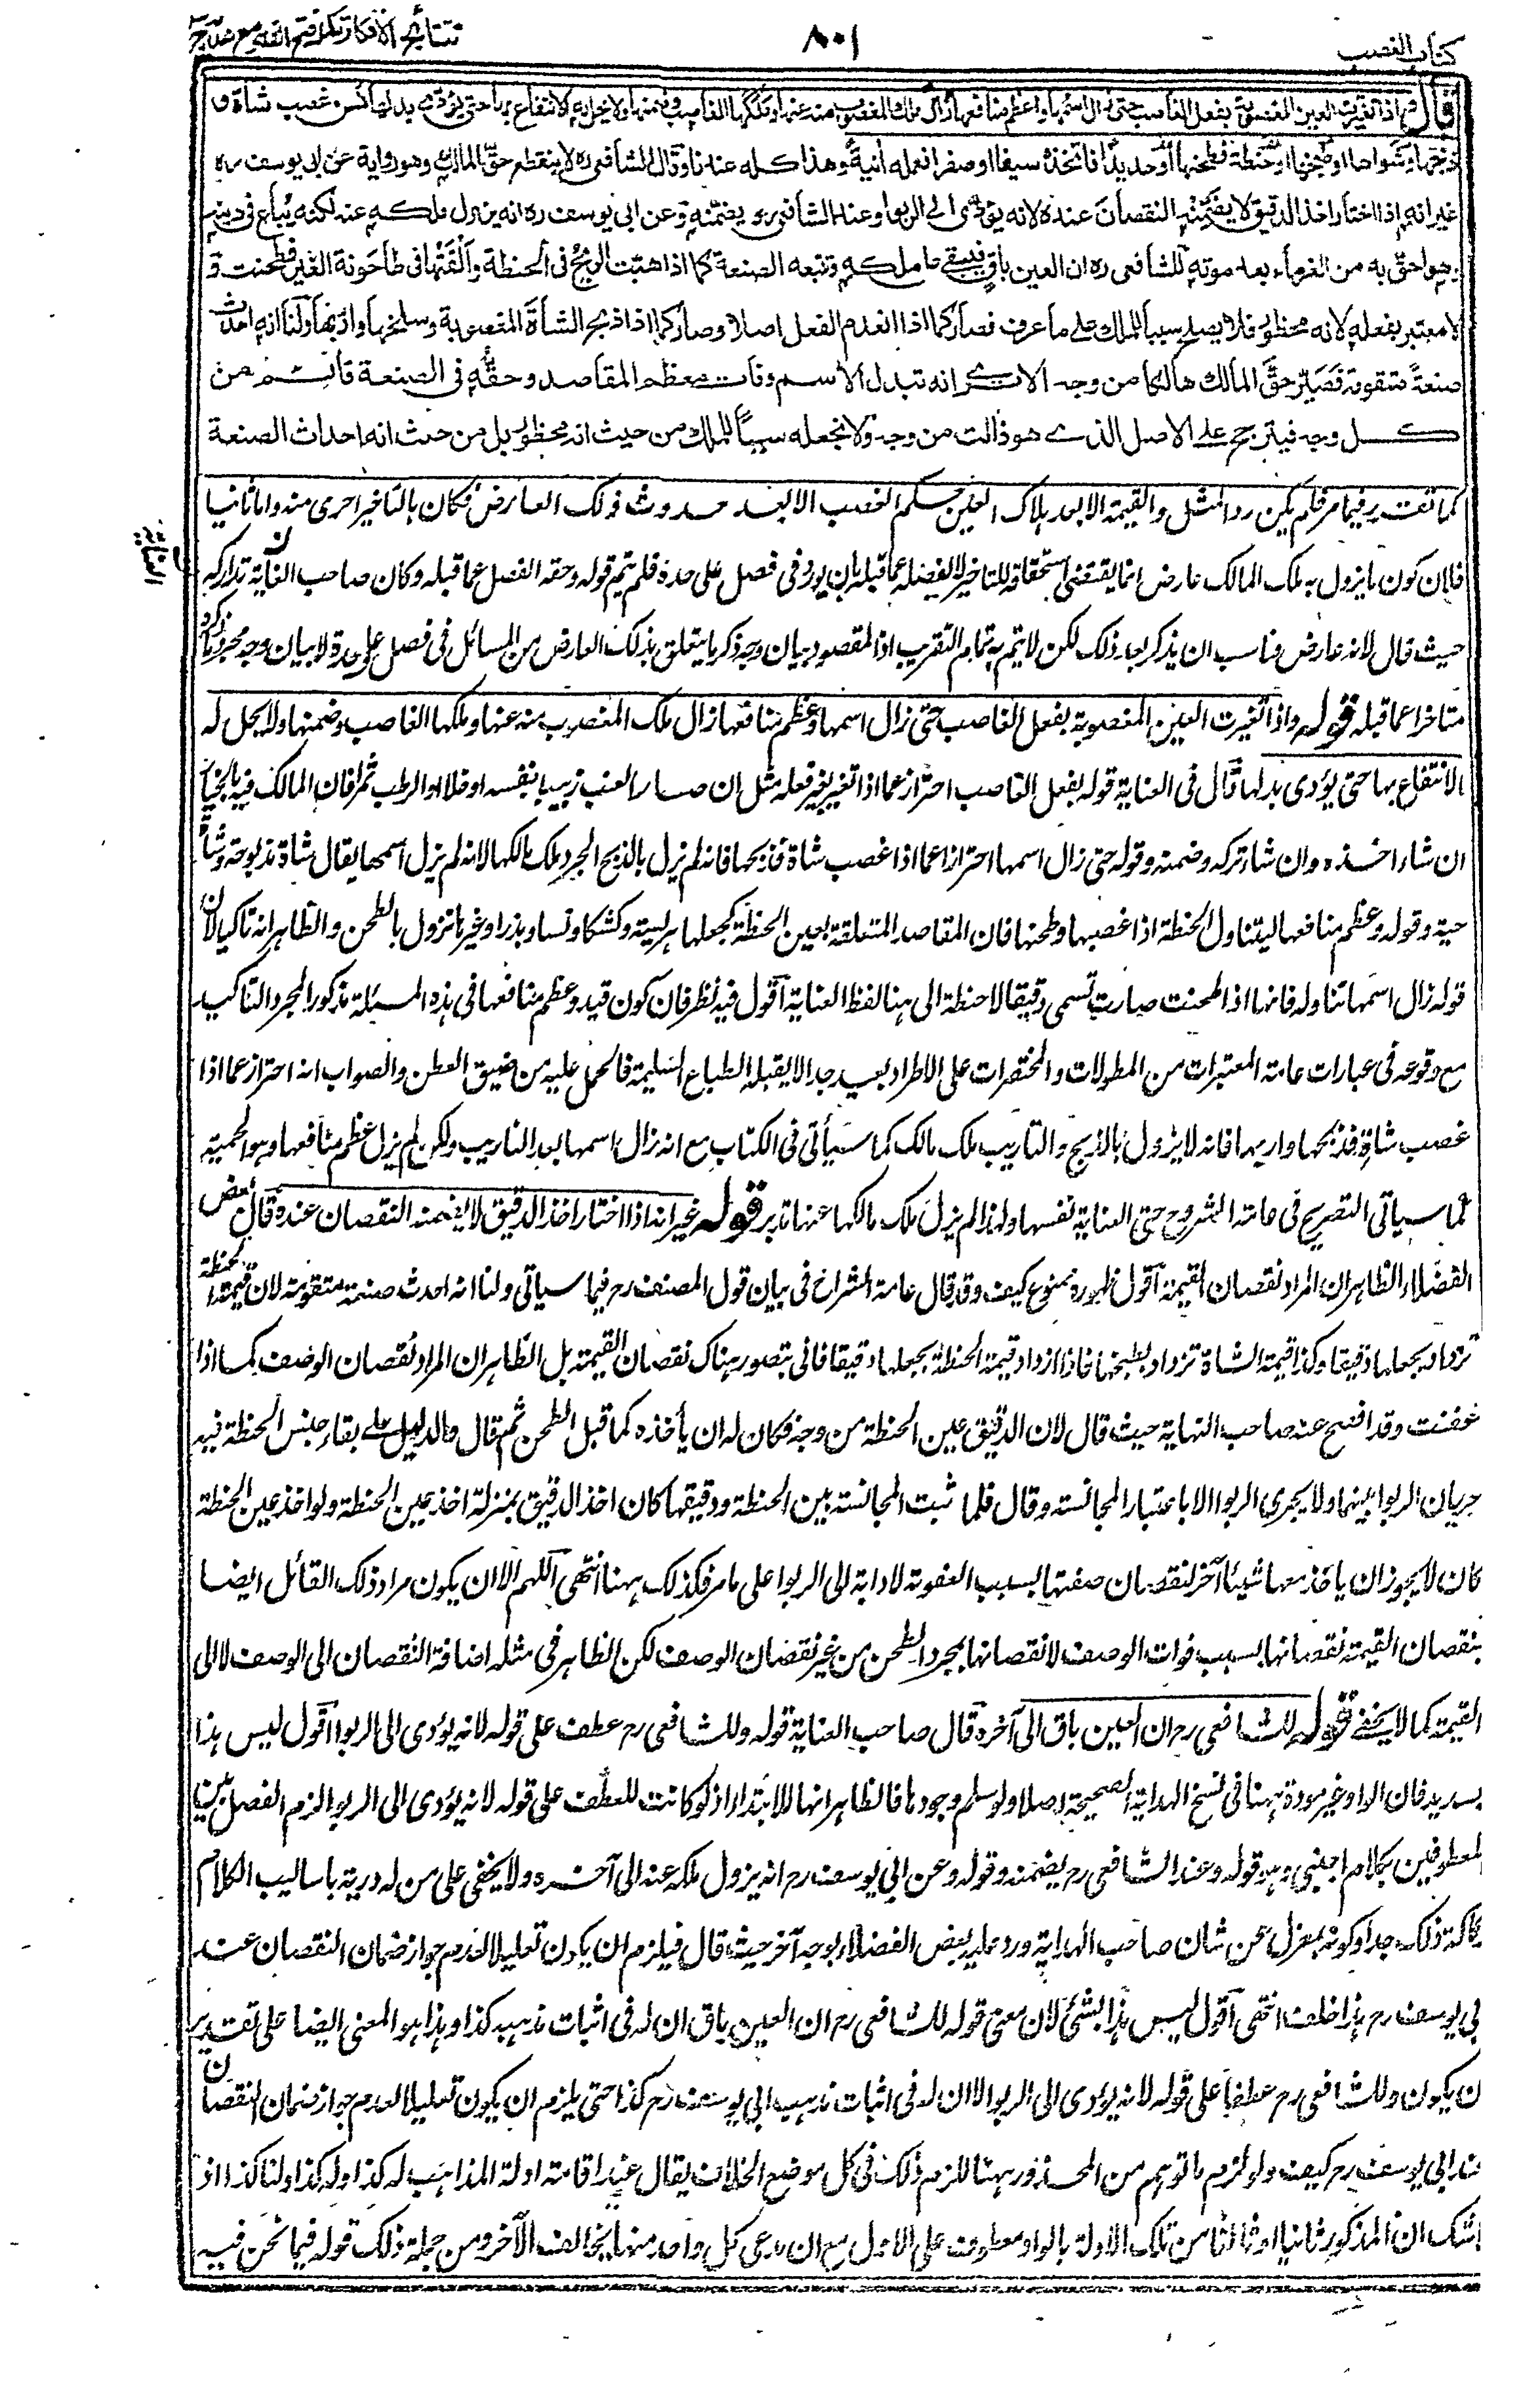 كتاب الغصب
٨٠١
نتائج الأفكار تكملة فتح القدير مع هداية ج ٣
قال واذا تغيرت العين المغصوبة بفعل الغاصب حتى زال اسمها واعظم منافعها زال ملك المغصوب منه عنها وملكها الغاصب وضمنها ولا يحل له الانتفاع بها حتى يؤدى بدلها كمن غصب شاة و
ذبحها وشواها او طبخها او حنطة فطحنها او حديدا فاتخذه سيفا او صفرا فعمله آنية وهذا كله عندنا وقال الشافعى ره لا ينقطع حق المالك وهو رواية عن ابى يوسف ره
غير انه اذا اختار اخذ الدقيق لا يضمّنه النقصان عنده لانه يؤدى الى الربوا وعند الشافعى ره يضمّنه وعن ابى يوسف ره انه يزول ملكه عنه لكنه يُباع فى دينه
وهو احق به من الغرماء بعد موته للشافعى ره ان العين باق فيبقى على ملكه وتتبعه الصنعة كما اذا هبّت الريح فى الحنطة والقتها فى طاحونة الغير فطحنت و
لا معتبر بفعله لانه محظور فلا يصلح سببا للملك على ما عرف فصار كما اذا انعدم الفعل اصلا وصار كما اذا ذبح الشاة المغصوبة وسلخها واربها ولنا انه احدث
صنعة متقومة فصيّر حق المالك هالكا من وجه الا ترى انه تبدل الاسم وفات معظم المقاصد وحقّه فى الصنعة قائم من
كل وجه فيترجح على الاصل الذى هو فائت من وجه ولا نجعله سببا للملك من حيث انه محظور بل من حيث انه احداث الصنعة
كما تقرر فيما مر فلم يكن رد المثل والقيمة الا بعد هلاك العين حكم الغصب الا بعد حدوث ذلك العارض فكان بالتاخير احرى منه واما ثانيا
فلان كون ما يزول به ملك المالك عارضا انما يقتضى استحقاقه للتاخير لا لفضله عما قبله بان يورد فى فصل على حدة فلم يتم قوله وحقه الفصل عما قبله وكان صاحب الغاية تداركه
حيث قال لانه عارض فناسب ان يذكر بعد ذلك لكن لا يتم به تمام التقريب اذ المقصود بيان وجه ذكر ما يتعلق بذلك العارض من المسائل فى فصل على حدة لا بيان وجه مجرد ذكره
متاخرا عما قبله قوله واذا تغيرت العين المغصوبة بفعل الغاصب حتى زال اسمها وعظم منافعها زال ملك المغصوب منه عنها وملكها الغاصب وضمنها ولا يحل له
الانتفاع بها حتى يؤدى بدلها قال فى العناية قوله بفعل الغاصب احتراز عما اذا تغير بغير فعله مثل ان صار العنب زبيبا بنفسه او خلا او الرطب تمرا فان المالك فيه بالخيار
ان شاء اخذه وان شاء تركه وضمنه وقوله حتى زال اسمها احترازا عما اذا غصب شاة فذبحها فانه لم يزل بالذبح المجرد ملك مالكها لانه لم يزل اسمها يقال شاة مذبوحة وشاة
حية وقوله وعظم منافعها ليتناول الحنطة اذا غصبها وطحنها فان المقاصد المتعلقة بعين الحنطة كجعلها هريسة وكشكا ونشا وبذرا وغيرها تزول بالطحن والظاهر انه تاكيد لان
قوله زال اسمها تناوله فانها اذا طحنت صارت تسمى دقيقا لا حنطة الى هنا لفظ العناية اقول فيه نظر فان كون قيد وعظم منافعها فى هذه المسئلة مذكورا لمجرد التاكيد
مع وقوعه فى عبارات عامة المعتبرات من المطولات والمختصرات على الاطراد بعيد جدا لا يقبله الطباع السليمة فالحمل عليه من ضيق العطن والصواب انه احتراز عما اذا
غصب شاة فذبحها واربها فانه لا يزول بالذبح والتاريب ملك مالك كما سيأتى فى الكتاب مع انه زال اسمها بعد التاريب ولكن لم يزل عظم منافعها وهو اللحمية
كما سيأتى التصريح فى عامة الشروح حتى العناية نفسها ولهذا لم يزل ملك مالكها عنها تدبر قوله غير انه اذا اختار اخذ الدقيق لا يضمنه النقصان عنده قال بعض
الفضلاء الظاهر ان المراد نقصان القيمة اقول ظهوره ممنوع كيف وقد قال عامة الشراح فى بيان قول المصنف رح فيما سيأتى ولنا انه احدث صنعة متقومة لان قيمة الحنطة
تزداد بجعلها دقيقا وكذا قيمة الشاة تزداد بطبخها فاذا ازداد قيمة الحنطة بجعلها دقيقا فانى يتصور هناك نقصان القيمة بل الظاهر ان المراد نقصان الوصف كما اذا
عفنت وقد افصح عنه صاحب النهاية حيث قال لان الدقيق عين الحنطة من وجه فكان له ان يأخذه كما قبل الطحن ثم قال والدليل على بقاء جنس الحنطة فيه
جريان الربوا بينهما ولا يجرى الربوا الا باعتبار المجانسة وقال فلما ثبت المجانسة بين الحنطة ودقيقها كان اخذ الدقيق بمنزلة اخذ عين الحنطة ولو اخذ عين الحنطة
كان لا يجوز ان ياخذ معها شيئا آخر لنقصان صفتها بسبب العفونة لادائه الى الربوا على ما مر فكذلك ههنا انتهى اللهم الا ان يكون مراد ذلك القائل ايضا
بنقصان القيمة نقصانها بسبب فوات الوصف لا نقصانها بمجرد الطحن من غير نقصان الوصف لكن الظاهر فى مثله اضافة النقصان الى الوصف لا الى
القيمة كما لا يخفى قوله للشافعى رح ان العين باق الى آخره قال صاحب العناية قوله وللشافعى رح عطف على قوله لانه يؤدى الى الربوا اقول ليس هذا
بسديد فان الواو غير موجودة ههنا فى نسخ الهداية الصحيحة اصلا ولو سلم وجودها فالظاهر انها للابتداء اذ لو كانت للعطف على قوله لانه يؤدى الى الربوا لزم الفصل بين
المعطوفين بكلام اجنبى وهو قوله وعند الشافعى رح يضمنه وقوله وعن ابى يوسف رح انه يزول ملكه عنه الى آخره ولا يخفى على من له دربة باساليب الكلام
ركاكة ذلك جدا وكونه بمعزل عن شان صاحب الهداية ورد عليه بعض الفضلاء بوجه آخر حيث قال فيلزم ان يكون تعليلا لعدم جواز ضمان النقصان عند
ابى يوسف رح هذا خلف انتهى اقول ليس هذا بشئ لان معنى قوله للشافعى رح ان العين باق ان له فى اثبات مذهبه كذا وهذا هو المعنى ايضا على تقدير
ان يكون وللشافعى رح عطفا على قوله لانه يؤدى الى الربوا لا ان له فى اثبات مذهب ابى يوسف رح كذا حتى يلزم ان يكون تعليلا لعدم جواز ضمان النقصان
عند ابى يوسف رح كيف ولو لزم ما توهم من المحذور ههنا للزم ذلك فى كل موضع الخلاف يقال عند اقامة ادلة المذاهب له كذا وله كذا ولنا كذا اذ
لا شك ان المذكور ثانيا او ثالثا من تلك الادلة بالواو معطوف على الاول مع ان مدعى كل واحد منها يخالف الآخر ومن جملة ذلك قوله فيما نحن فيه